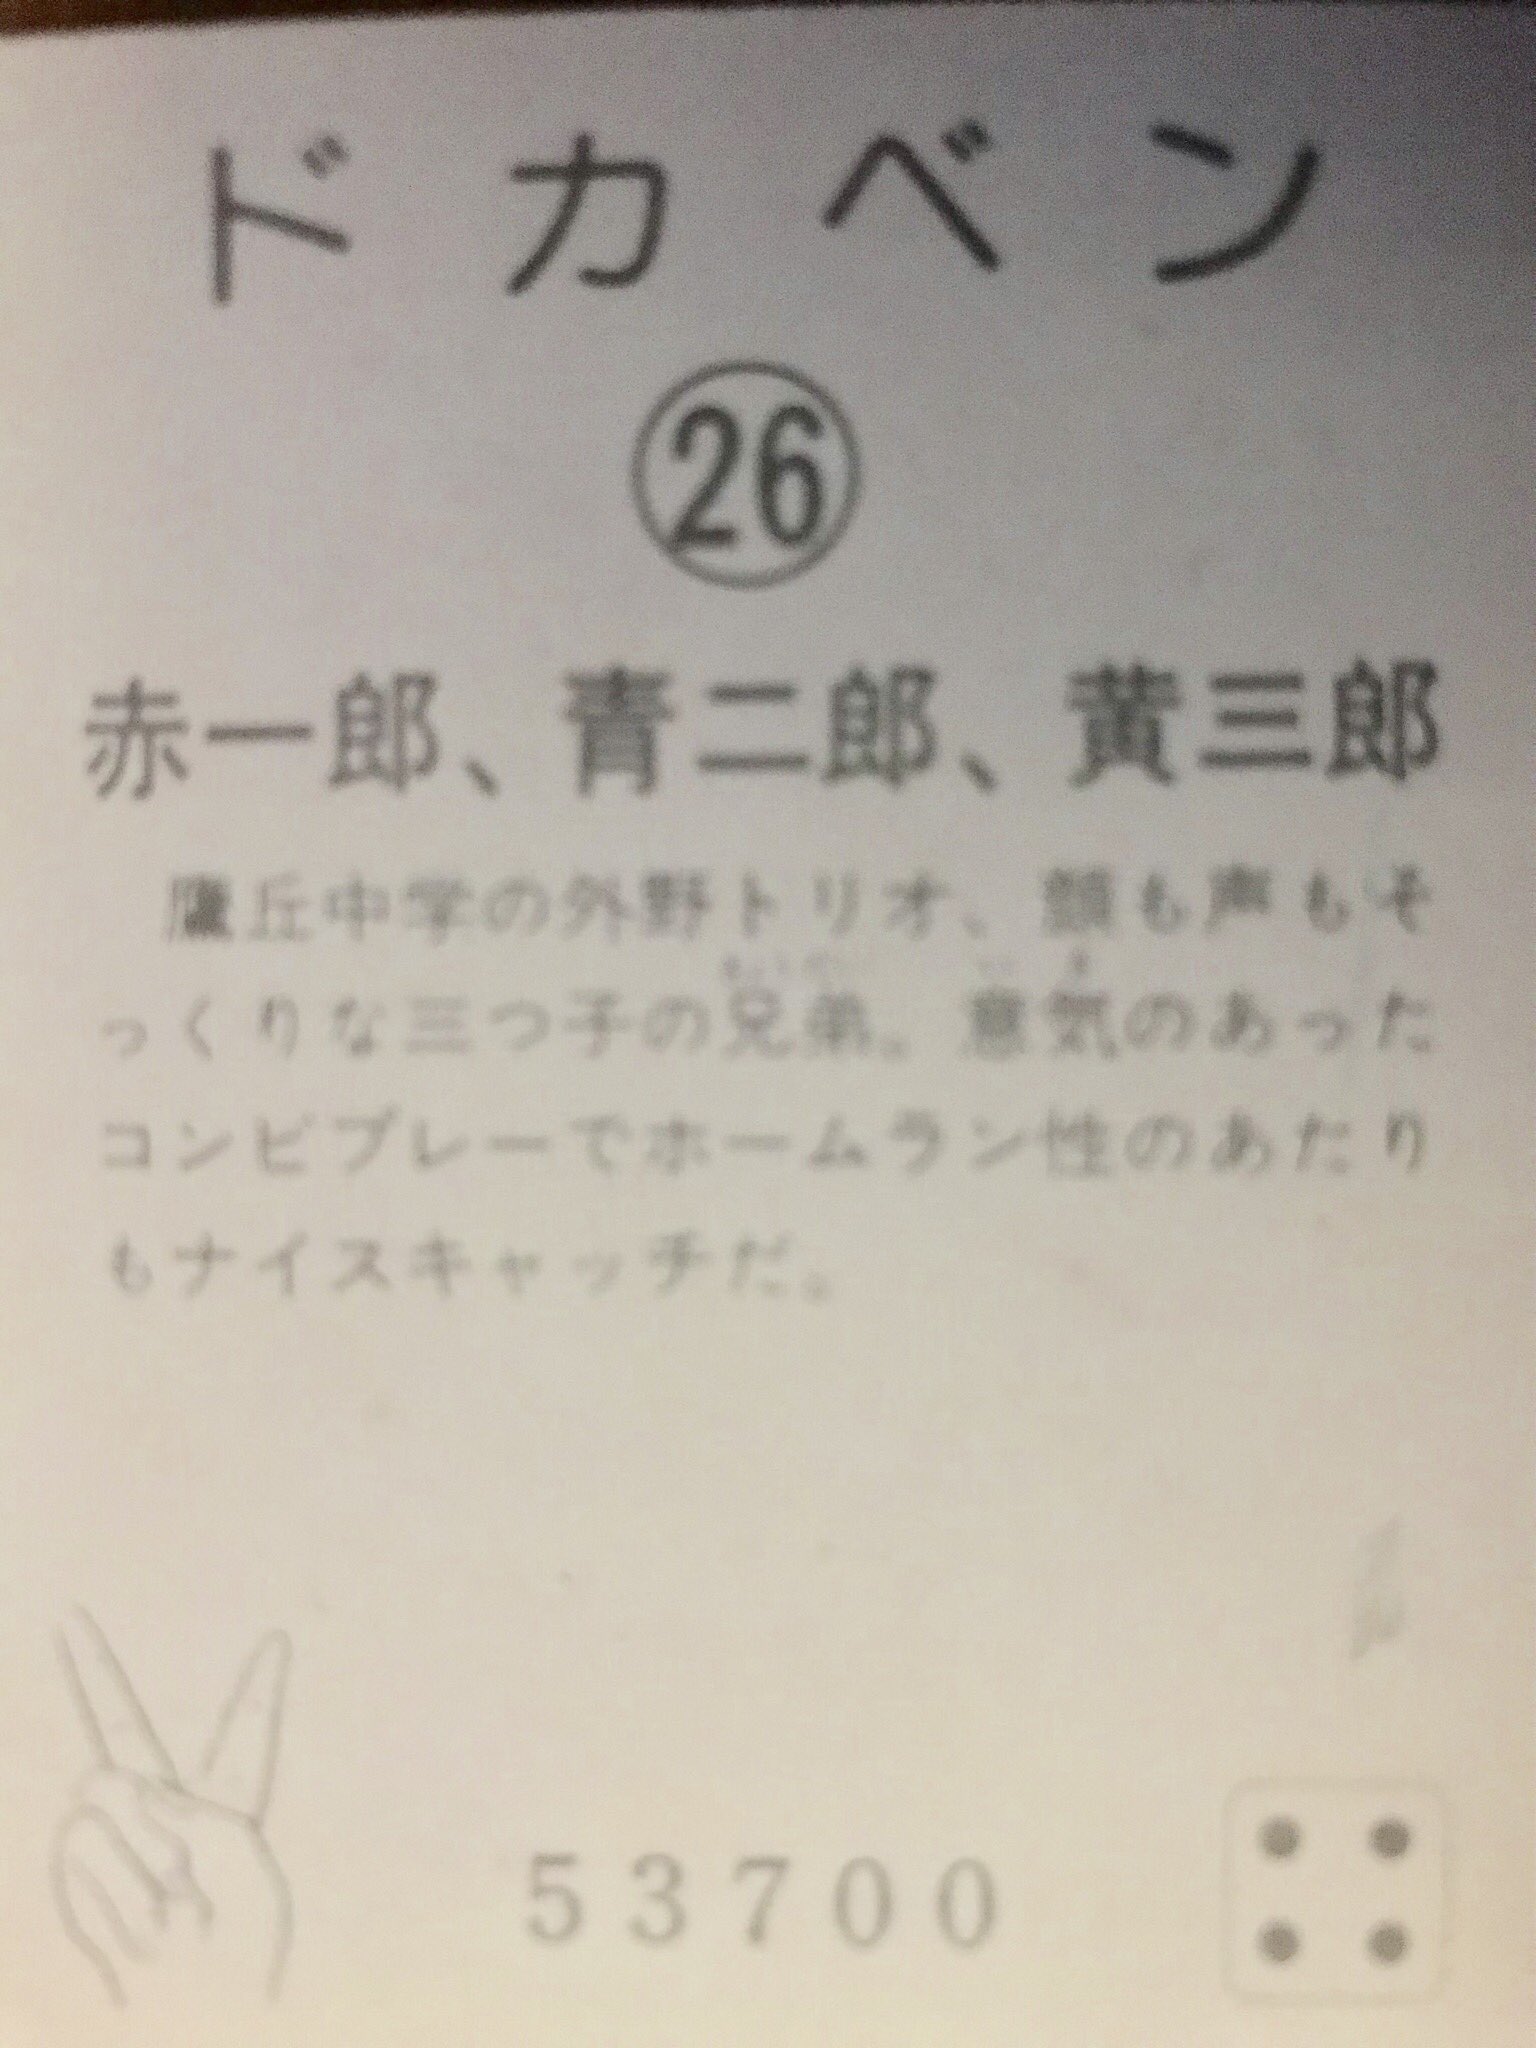 ドカベン
㉖
赤一郎、青二郎、黄三郎
鷹丘中学の外野トリオ、顔も声もそ
っくりな三つ子の兄弟。意気のあった
コンビプレーでホームラン性のあたり
もナイスキャッチだ。
53700